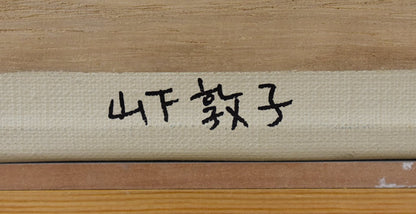 山下敦子